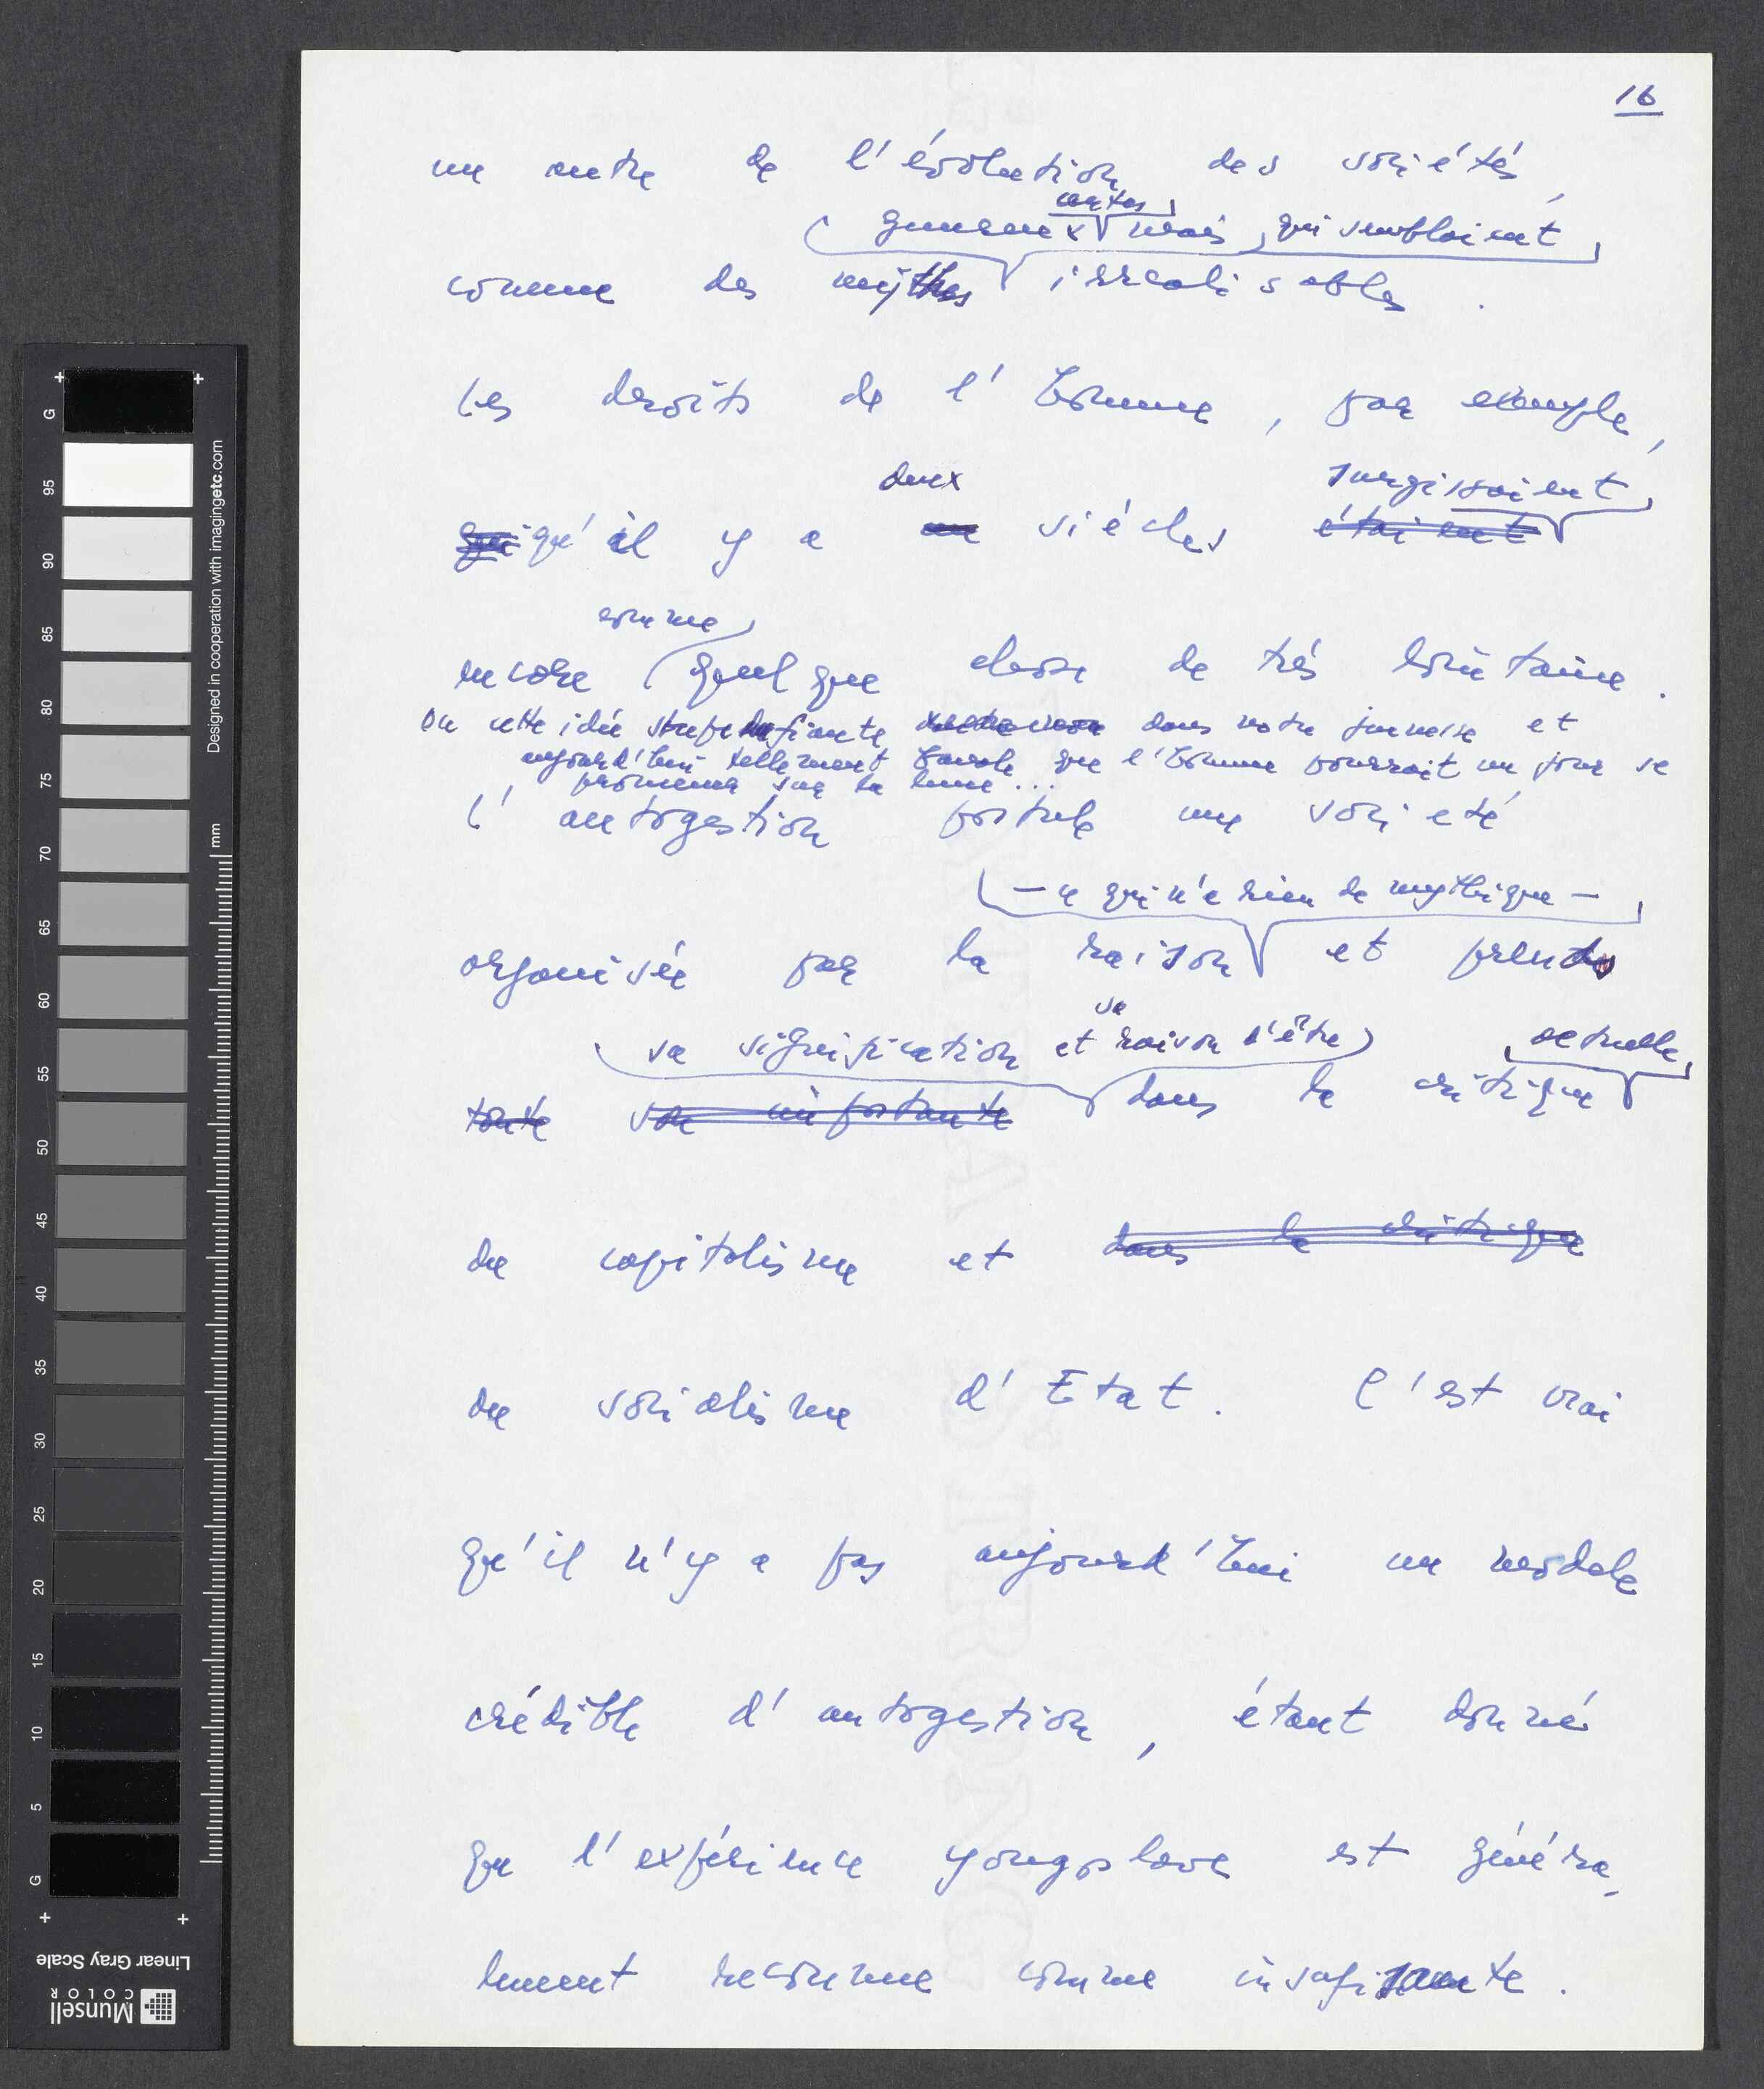 16
un autre de l'évolution des sociétés,
certes
généreux mais qui semblaient
comme des mythes irréalisables.
Les droits de l'homme, par exemple,
deux surgissaient
qui qu'il y a un siècles étaient
comme
encore quelque chose de très lointaine.
Ou cette idée stupéfiante dans notre jeunesse et
aujourd'hui tellement banale que l'homme pourrait un jour se
promener sur la lune...
L'autogestion postule une société
— ce qui n'a rien de mythique —
organisée par la raison et prend
sa
sa signification et raison d'être actuelle
toute son importante dans la critique
du capitalisme et dans la critique
du socialisme d'Etat. C'est vrai
qu'il n'y a pas aujourd'hui un modèle
crédible d'autogestion, étant donné
que l'expérience yougoslave est généra-
lement reconnue comme insuffisante.
Designed in cooperation with imagingetc.com
mm
G 95 90 85 80 75 70 65 60 55 50 45 40 35 30 25 20 15 10 5 G
Linear Gray Scale
Munsell
COLOR